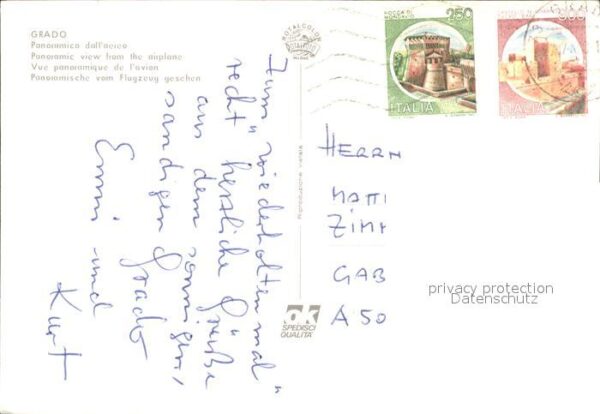 GRADO
Panoramica dall'aereo
Panoramic view from the airplane
Vue panoramique de l'avion
Panoramische vom Flugzeug gesehen
ROTALCOLOR
ROCCA DI
250
ITALIA
ITALIA
Zum "wiederholten mal"
recht herzliche Grüße
aus dem sonnigen,
sandigen Grado
Emmi und
Kurt
Riproduzione vietata
OK
SPEDISCI
QUALITÀ
HERRN
MATTI
ZIM
GAB
A 50
privacy protection
Datenschutz